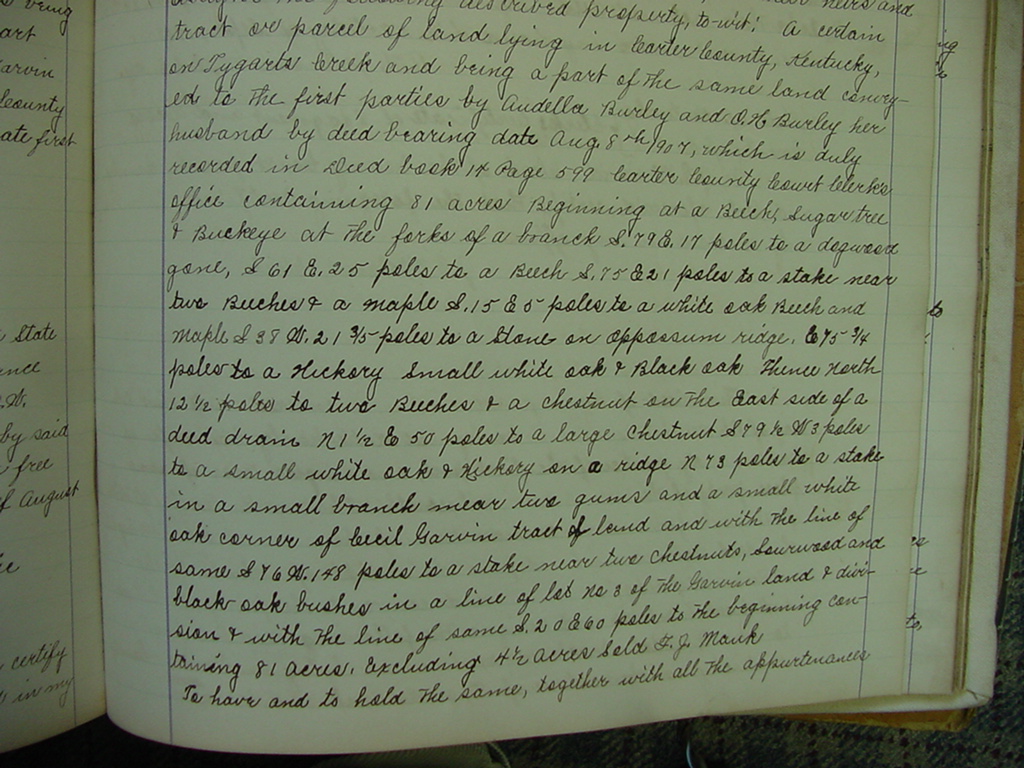 s being
art
arvin
County
ate first
State
ence
W.
by said
free
of August
certify
in my
described property, to-wit: A certain
tract or parcel of land lying in Carter County, Kentucky,
on Tygarts Creek and being a part of the same land convey-
ed to the first parties by Audella Burley and O.H. Burley her
husband by deed bearing date Aug. 8th 1907, which is duly
recorded in Deed book 14 Page 599 Carter County Court Clerks
office containing 81 acres Beginning at a Beech, Sugar tree
& Buckeye at the forks of a branch S. 79 E. 17 poles to a dogwood
gone, S 61 E. 25 poles to a Beech S. 75 E 21 poles to a stake near
two Beeches & a maple S. 15 E 5 poles to a white oak Beech and
maple S 38 W. 21 3/5 poles to a Stone on Oppossum ridge. E 75 3/4
poles to a Hickory Small white oak & Black oak Thence North
12 1/2 poles to two Beeches & a chestnut on the East side of a
deed drain N 1 1/2 E 50 poles to a large Chestnut S 79 1/2 W 3 poles
to a small white oak & Hickory on a ridge N 73 poles to a stake
in a small branch near two gums and a small white
oak corner of Cecil Garvin tract of land and with the line of
same S 76 W. 148 poles to a stake near two Chestnuts, Sourwood and
black oak bushes in a line of lot no 3 of the Garvin land & divi-
sion & with the line of same S. 20 E 60 poles to the beginning con-
taining 81 acres. Excluding 4 1/2 acres Sold F. J. Mauk
To have and to hold the same, together with all the appurtenances
to